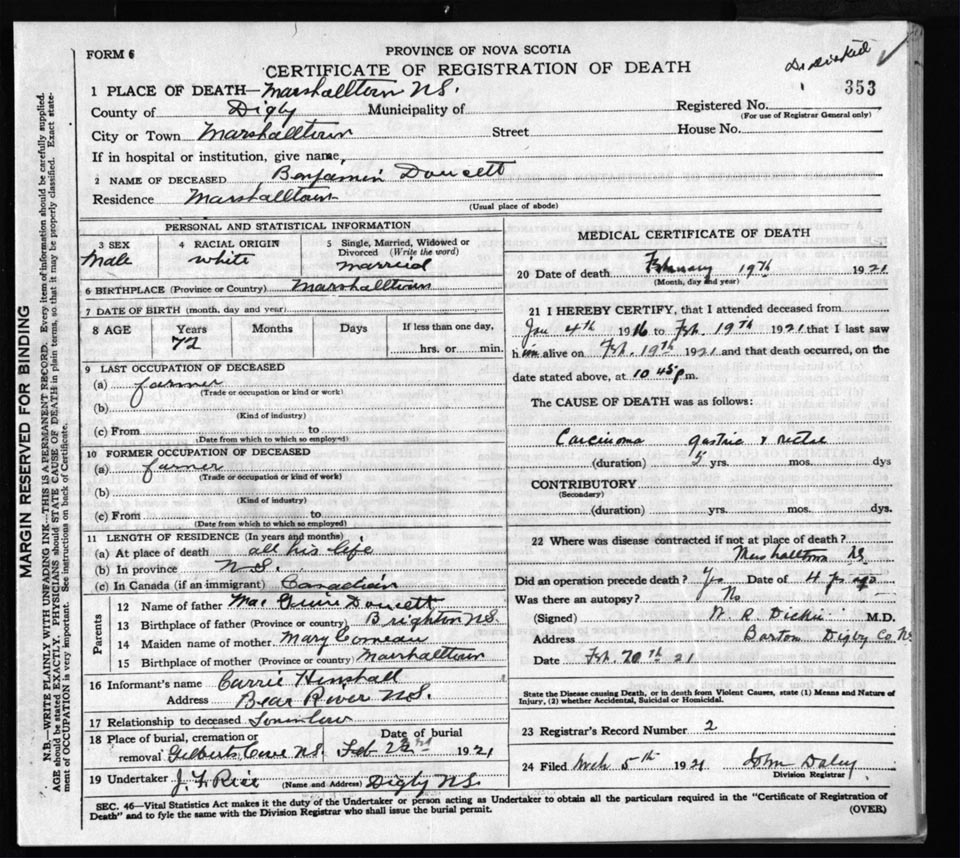 FORM 6
PROVINCE OF NOVA SCOTIA
CERTIFICATE OF REGISTRATION OF DEATH
353
1 PLACE OF DEATH—Marshalltown N.S.
County of Digby Municipality of
Registered No.
(For use of Registrar General only)
City or Town Marshalltown Street House No.
If in hospital or institution, give name,
2 NAME OF DECEASED Benjamin Doucett
Residence Marshalltown
(Usual place of abode)
PERSONAL AND STATISTICAL INFORMATION
3 SEX 4 RACIAL ORIGIN 5 Single, Married, Widowed or
Divorced (Write the word)
Male white married
6 BIRTHPLACE (Province or Country) Marshalltown
7 DATE OF BIRTH (month, day and year)
8 AGE Years Months Days If less than one day,
72 hrs. or min.
9 LAST OCCUPATION OF DECEASED
(a) farmer
(Trade or occupation or kind or work)
(b)
(Kind of industry)
(c) From to
(Date from which to which so employed)
10 FORMER OCCUPATION OF DECEASED
(a) farmer
(Trade or occupation or kind of work)
(b)
(Kind of industry)
(c) From to
(Date from which to which so employed)
11 LENGTH OF RESIDENCE (In years and months)
(a) At place of death all his life
(b) In province N.S.
(c) In Canada (if an immigrant) Canadian
Parents
12 Name of father Doucett
13 Birthplace of father (Province or country) Brighton N.S.
14 Maiden name of mother Mary Comeau
15 Birthplace of mother (Province or country) Marshalltown
16 Informant's name Carrie Henshall
Address Bear River N.S.
17 Relationship to deceased Soninlaw
18 Place of burial, cremation or Date of burial
removal Gilberts Cove N.S. Feb 1921
19 Undertaker J. F. Rice (Name and Address) Digby N.S.
MEDICAL CERTIFICATE OF DEATH
20 Date of death February 19th 1921
(Month, day and year)
21 I HEREBY CERTIFY, that I attended deceased from
Jan 4th 1916 to Feb. 19th 1921 that I last saw
him alive on Feb. 19th 1921 and that death occurred, on the
date stated above, at 10 45 p m.
The CAUSE OF DEATH was as follows:
Carcinoma gastric & rectal
(duration) 5 yrs. mos. dys
CONTRIBUTORY
(Secondary)
(duration) yrs. mos. dys.
22 Where was disease contracted if not at place of death?
Marshalltown NS
Did an operation precede death? Yes Date of 4 yrs ago
Was there an autopsy? No
(Signed) W. R. Dickie M.D.
Address Barton Digby Co. NS
Date Feb. 20th 21
State the Disease causing Death, or in death from Violent Causes, state (1) Means and Nature of
Injury, (2) whether Accidental, Suicidal or Homicidal.
23 Registrar's Record Number 2
24 Filed Mch 5th 1921 John Daley
Division Registrar
SEC. 46—Vital Statistics Act makes it the duty of the Undertaker or person acting as Undertaker to obtain all the particulars required in the "Certificate of Registration of
Death" and to fyle the same with the Division Registrar who shall issue the burial permit.
(OVER)
MARGIN RESERVED FOR BINDING
N.B.—WRITE PLAINLY WITH UNFADING INK—THIS IS A PERMANENT RECORD. Every item of information should be carefully supplied.
AGE should be stated EXACTLY. PHYSICIANS should STATE CAUSE OF DEATH in plain terms, so that it may be properly classified. Exact state-
ment of OCCUPATION is very important. See instructions on back of Certificate.